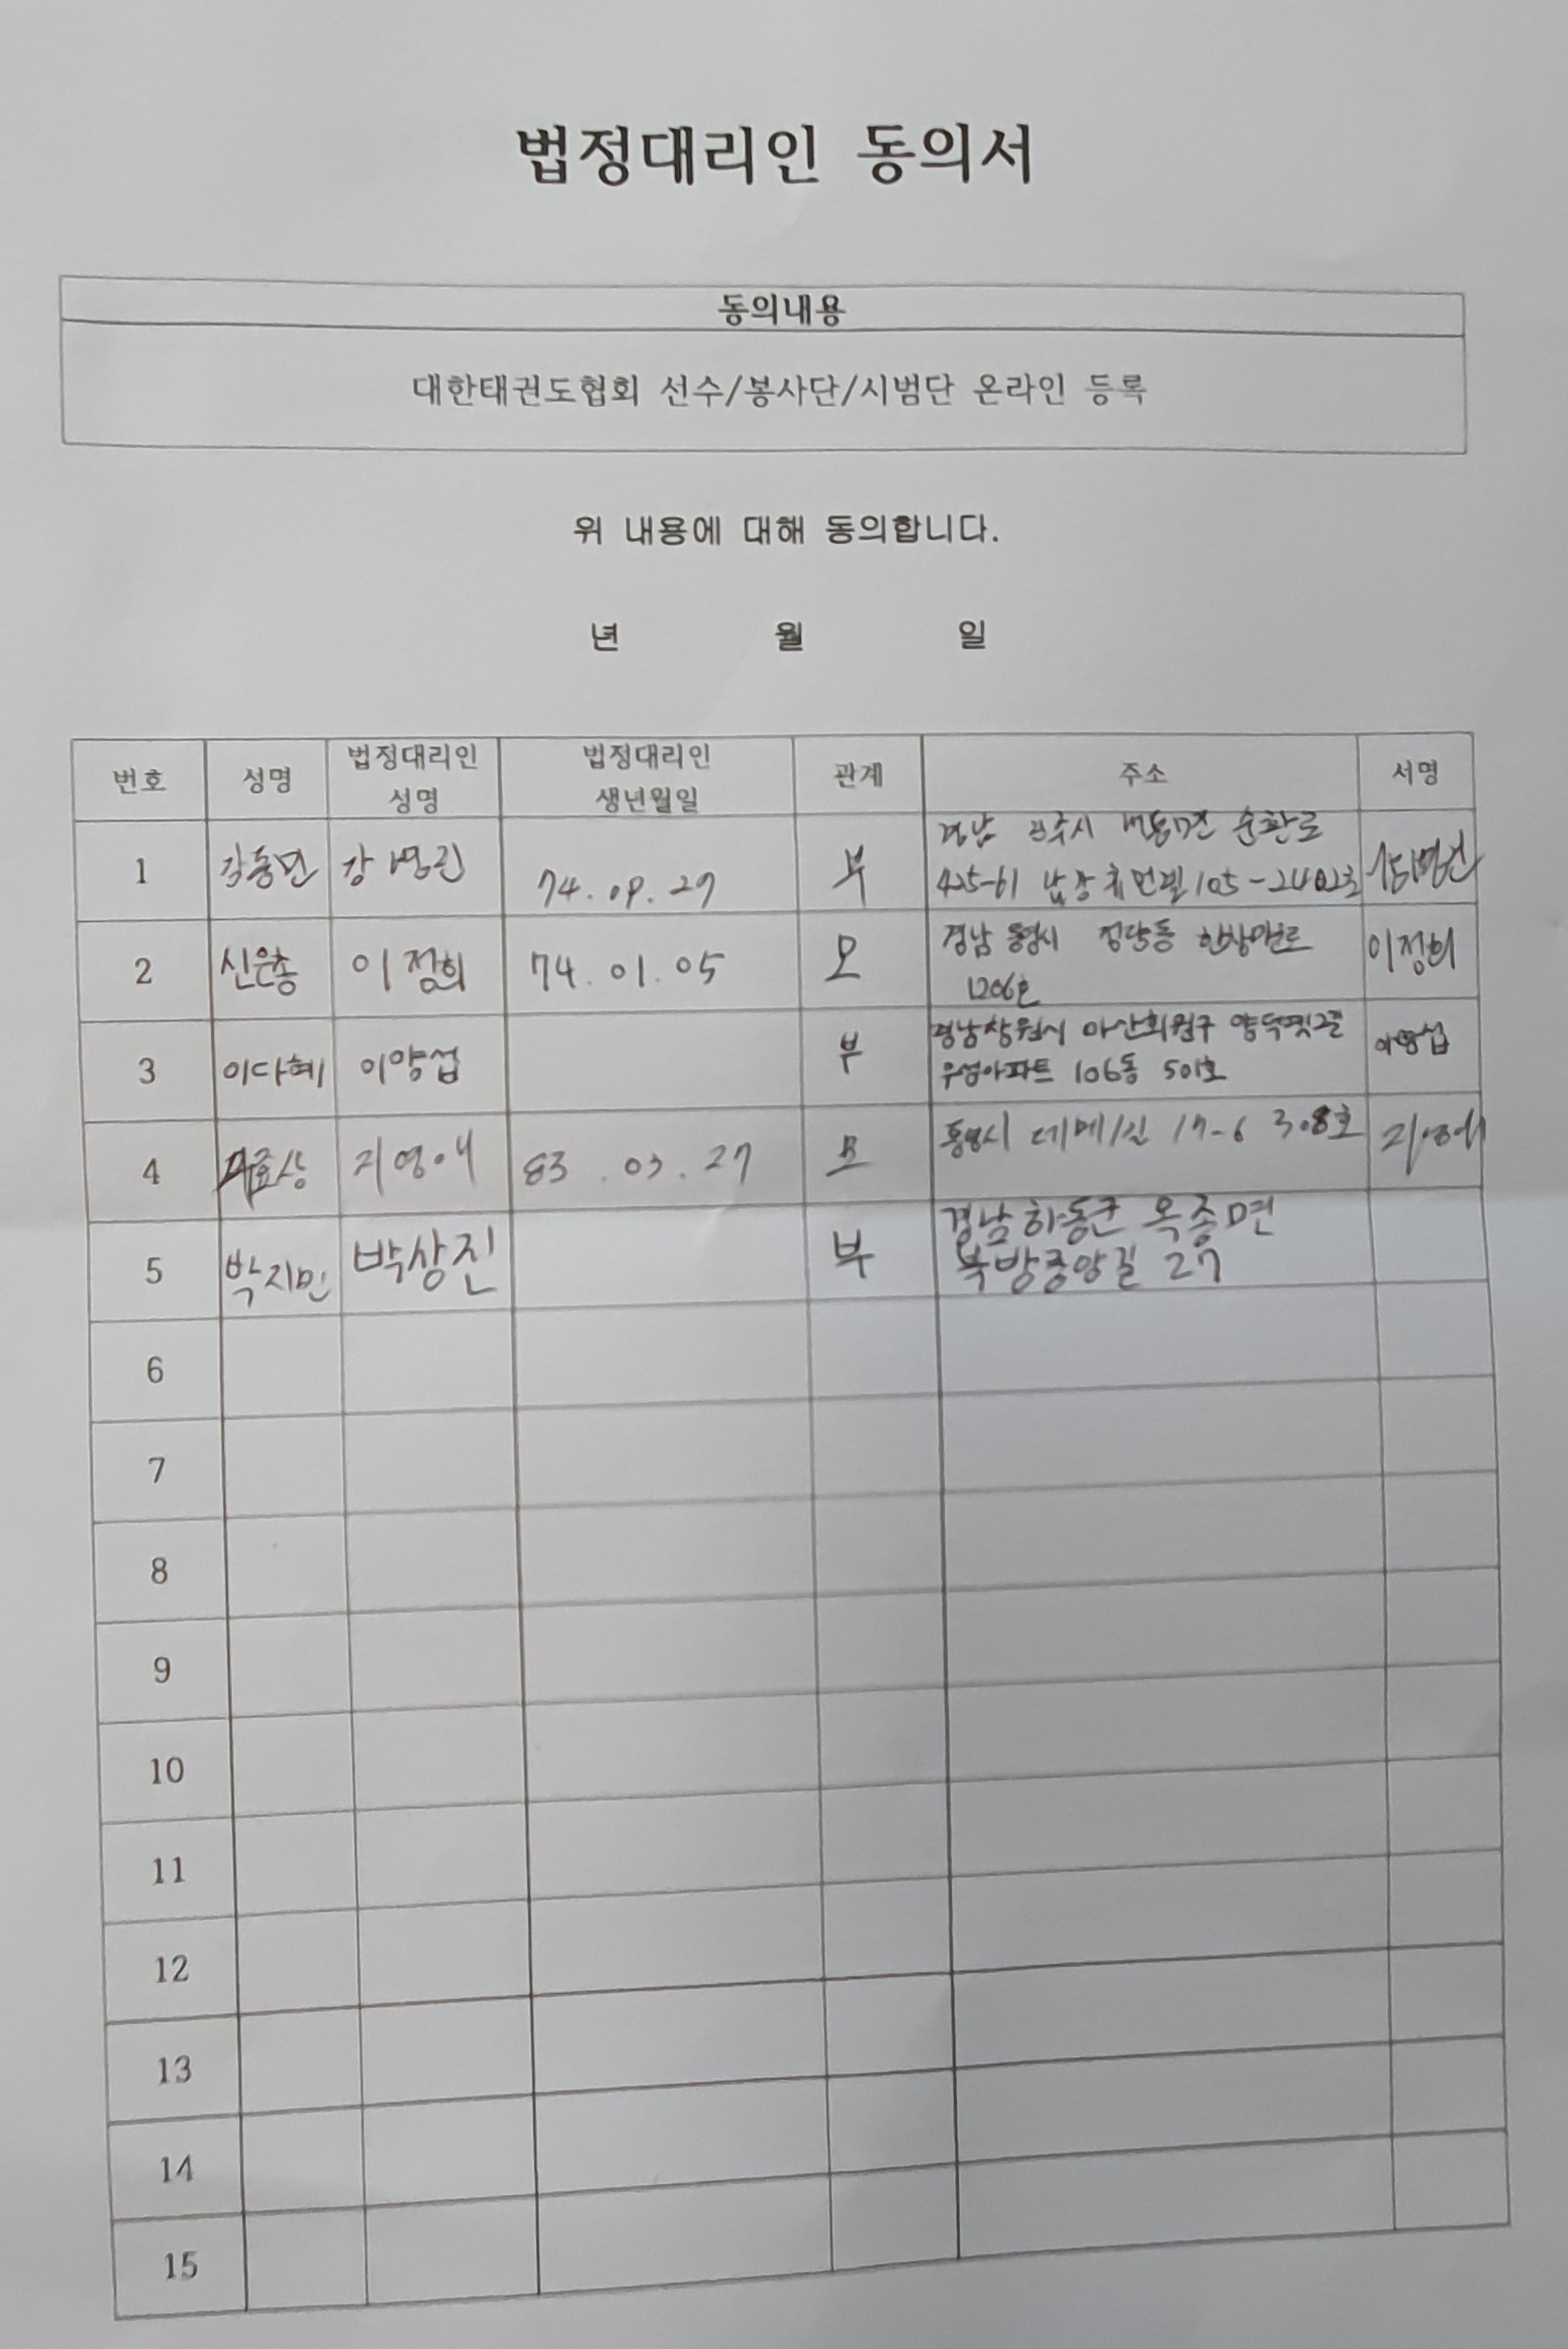 법정대리인 동의서
동의내용
대한태권도협회 선수/봉사단/시범단 온라인 등록
위 내용에 대해 동의합니다.
년 월 일
번호 성명 법정대리인 성명 법정대리인 생년월일 관계 주소 서명
1 강동민 74.09.27 부 순환로
105-2402호
2 신은총 이정희 74.01.05 모 경남 통영시 이정희
1206호
3 이다혜 이양섭 부 경남창원시 마산회원구
우성아파트 106동 501호
4 지영애 83.03.27 모 통영시 17-6 308호
5 박지민 박상진 부 경남 하동군 옥종면
북방중앙길 27
6
7
8
9
10
11
12
13
14
15